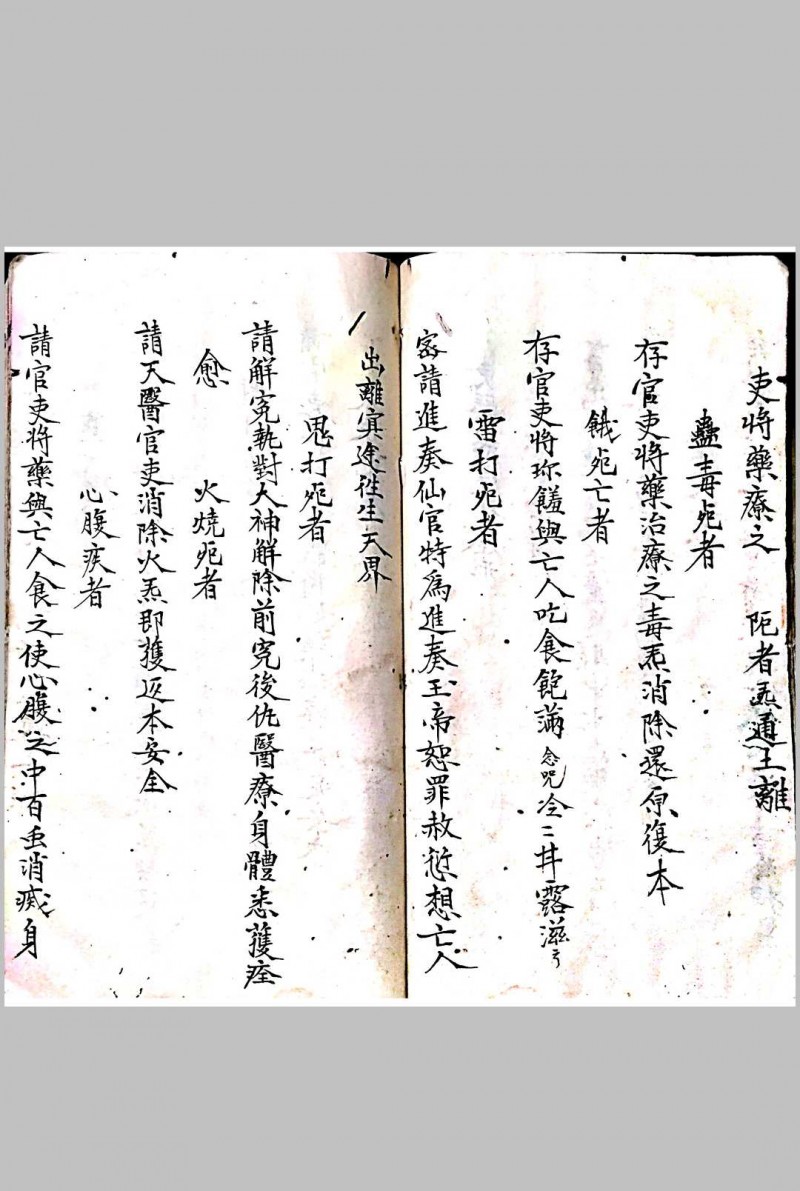 吏將藥療之 阨者炁通土離
蠱毒死者
存官吏將藥治療之毒炁消除還原復本
餓死亡者
存官吏將珍饈與亡人吃食飽滿 念咒 冷二井露滋
雷打死者
密請進奏仙官特為進奏玉帝恕罪赦愆想亡人
出離冥途徃生天界
鬼打死者
請解冤執對大神解除前冤後仇醫療身體悉獲痊
愈 火燒死者
請天醫官吏消除火炁即獲返本安全
心腹疾者
請官吏將藥與亡人食之使心腹之中百虫消滅身